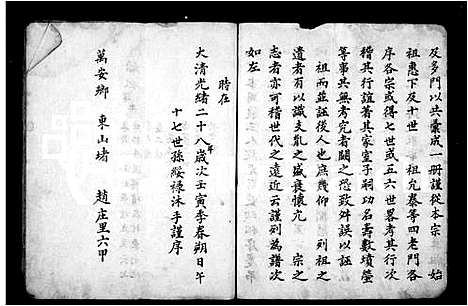 及多門以共彙成一冊謹從本宗 始
祖惠下及十世 祖允泰等四老門各
序各宗或得七世或五六世畧考其行次
稽其行誼著其家室子嗣功名壽數墳塋
等事其無考究者闕之恐致舛誤以誣
祖而並誣後人也庶幾仰 列祖之
遺者有以識支亂之盛衰懷亢 宗之
志者亦可稽世代之遠近云謹列為譜次
如左
時在
大清光緒二十八年歲次壬寅季春朔日午
十七世孫綏祿沐手謹序
萬安鄉 東山堵 趙庄里六甲